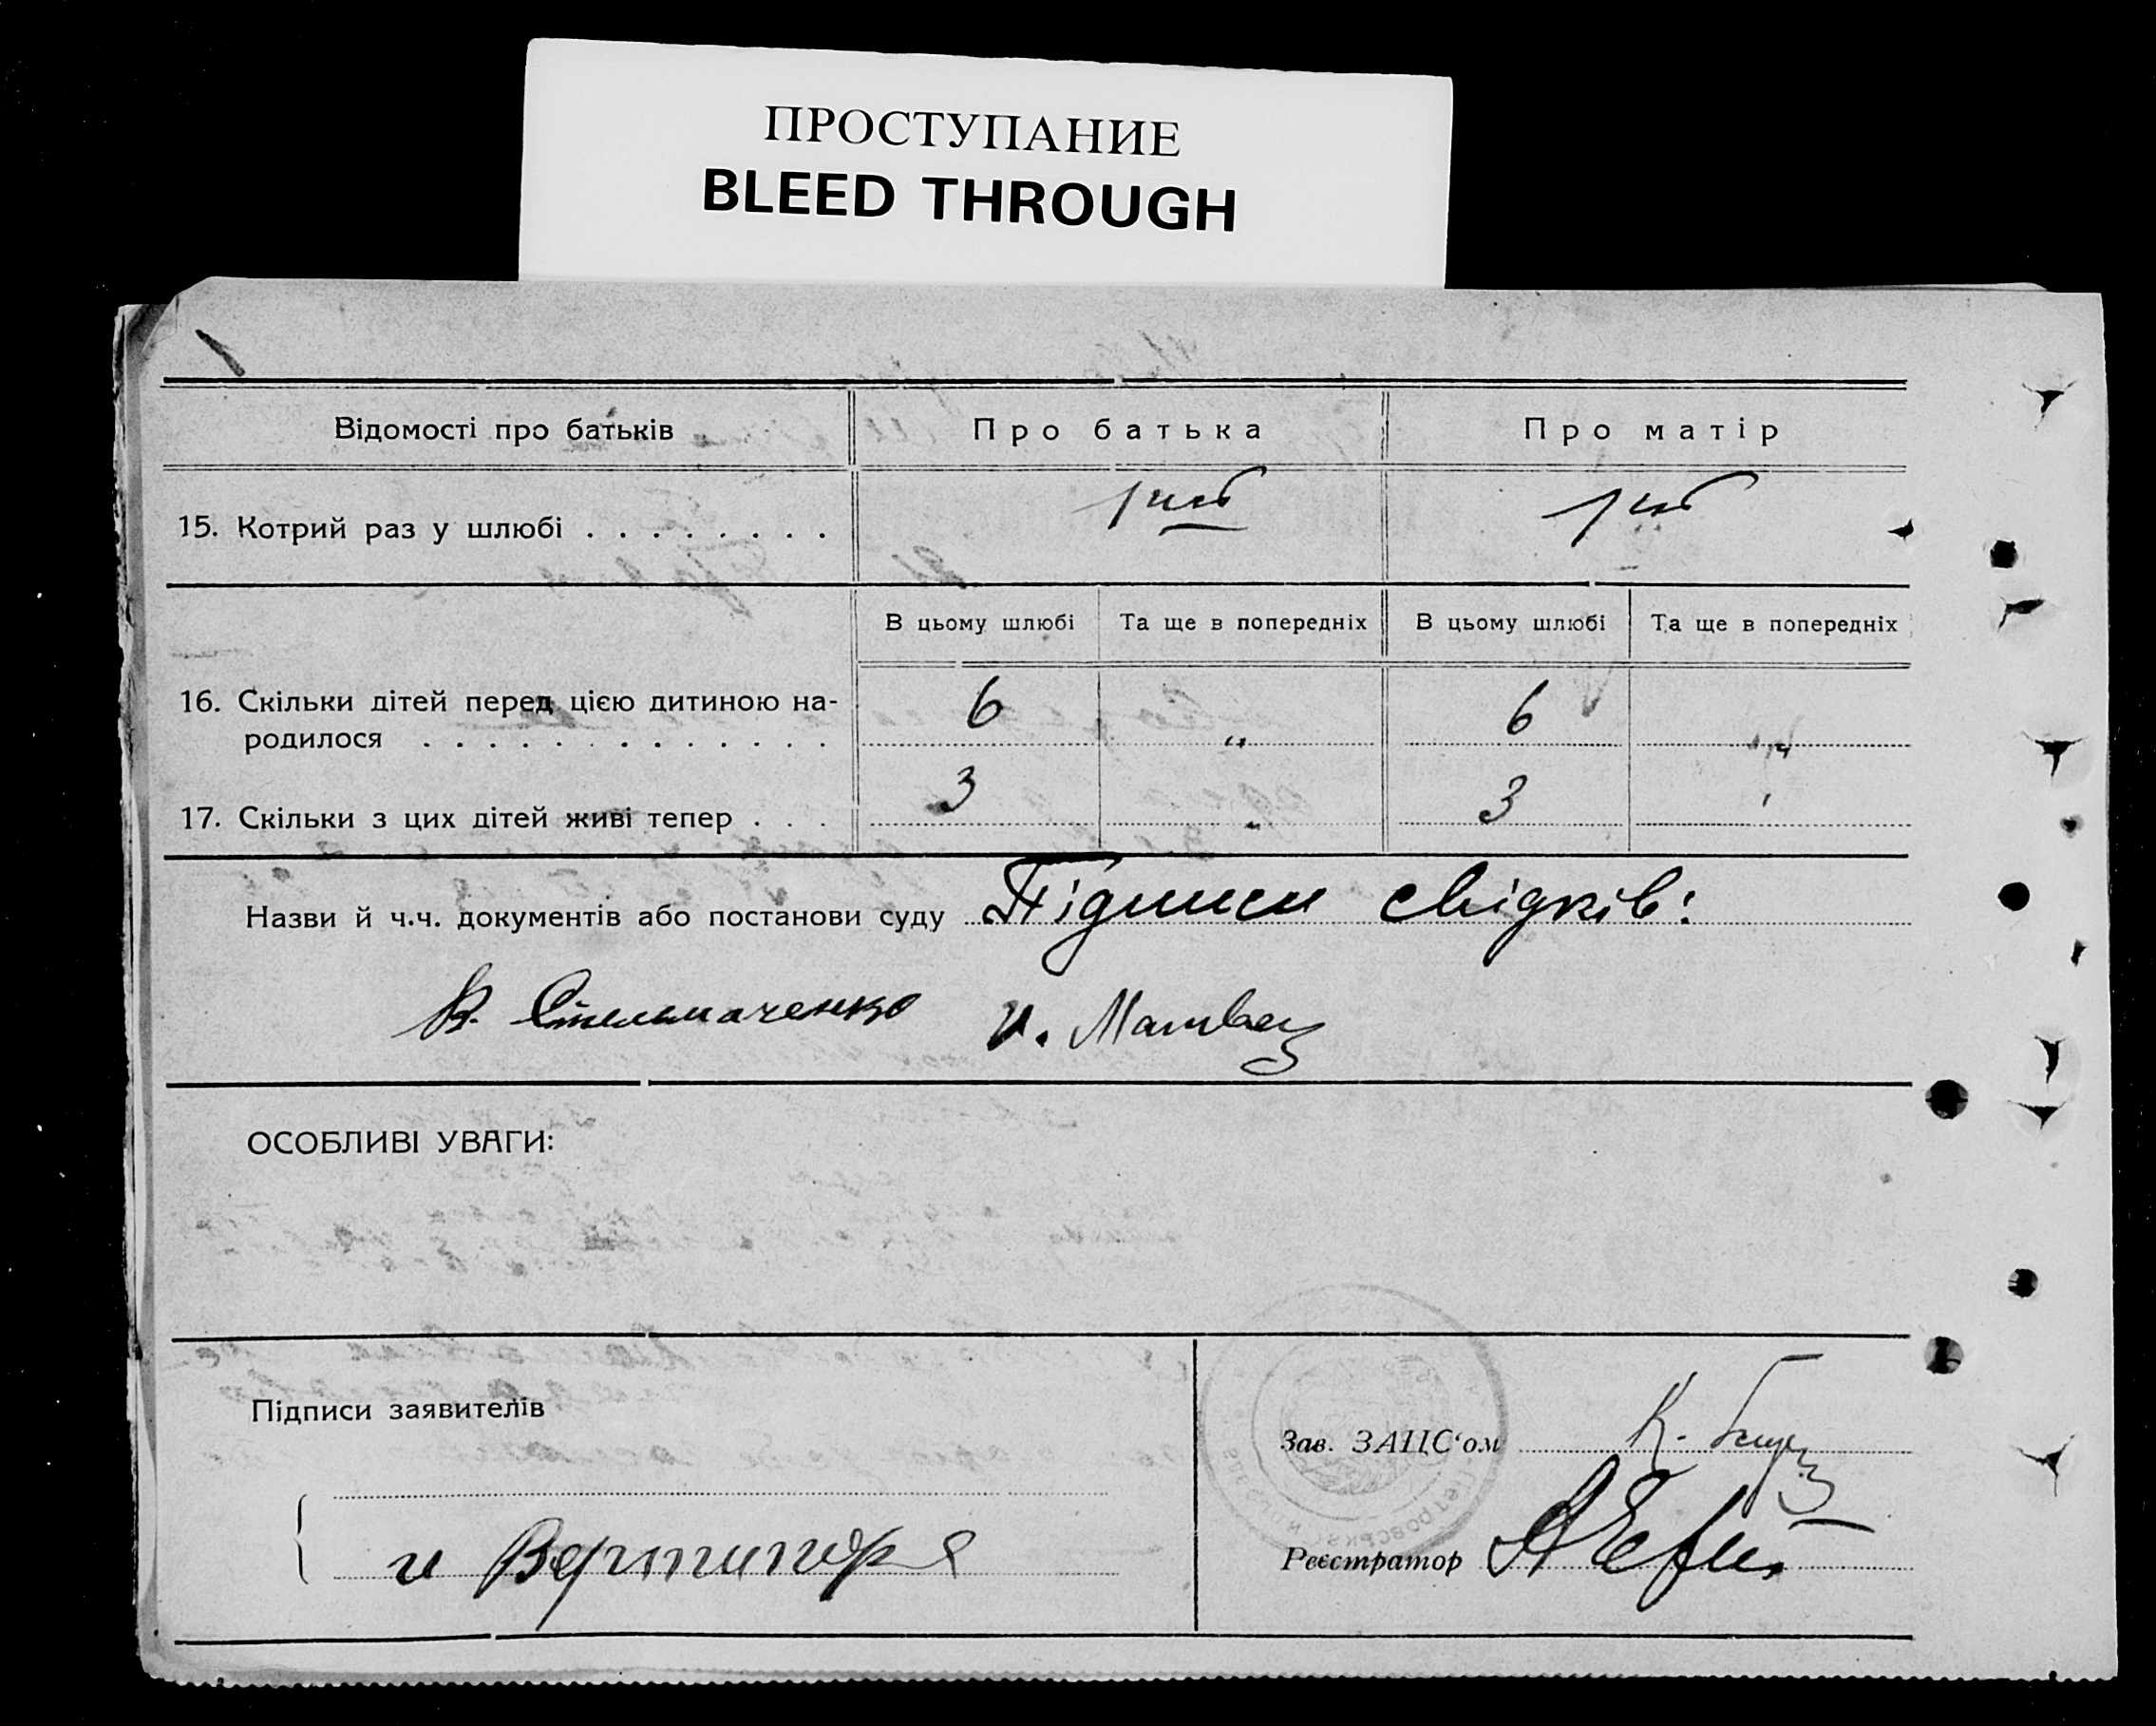 ПРОСТУПАНИЕ
BLEED THROUGH
Відомості про батьків Про батька Про матір
15. Котрий раз у шлюбі . . . . . . . . 1ий 1ий
В цьому шлюбі Та ще в попередніх В цьому шлюбі Та ще в попередніх
16. Скільки дітей перед цією дитиною на-
родилося . . . . . . . . . . . . . . 6 " 6 "
17. Скільки з цих дітей живі тепер . . . 3 " 3
Назви й ч.ч. документів або постанови суду Підписи свідків:
В. Стельмаченко И. Матвец
ОСОБЛИВІ УВАГИ:
Підписи заявителів
Зав. ЗАЦС'ом К.
и Вертипора
Реєстратор
Петровський